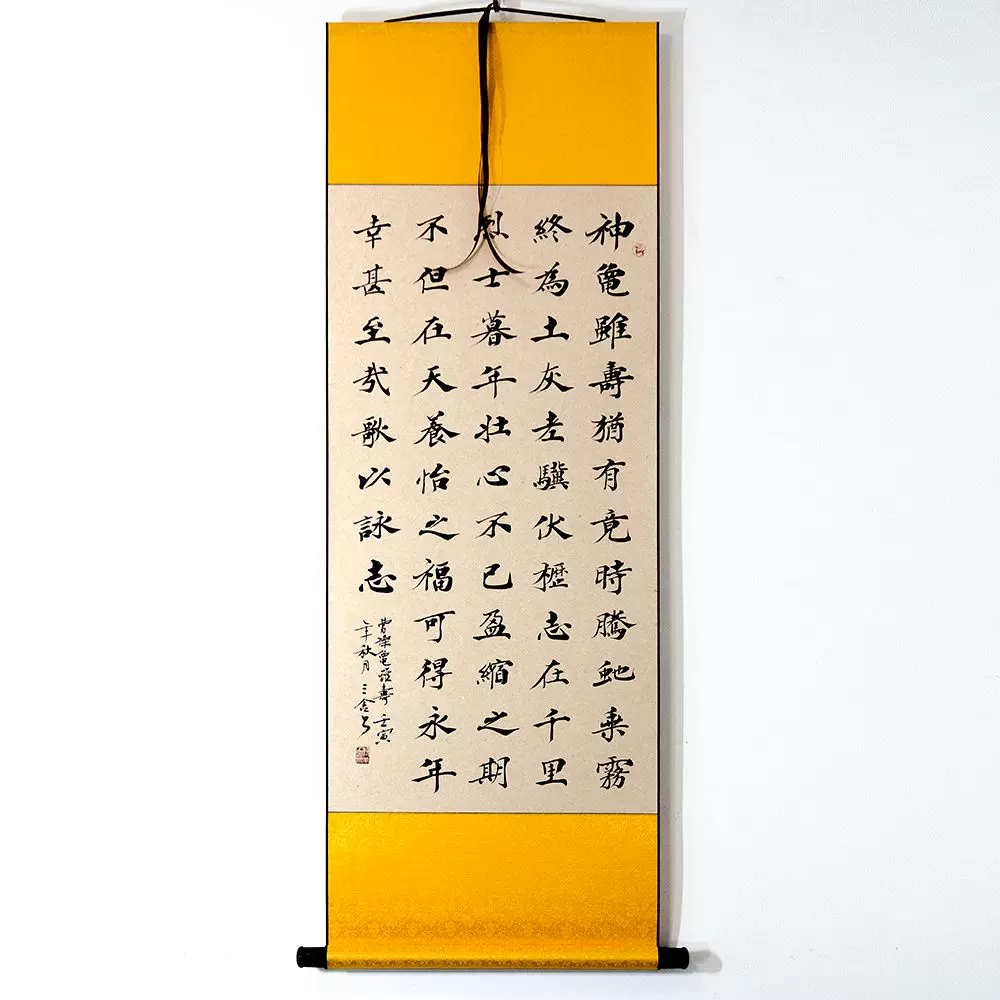 神龜雖壽猶有竟時騰虵乗霧
終為土灰老驥伏櫪志在千里
烈士暮年壯心不已盈縮之期
不但在天養怡之福可得永年
幸甚至哉歌以詠志
曹操龜雖壽 壬寅
年秋月 三舍